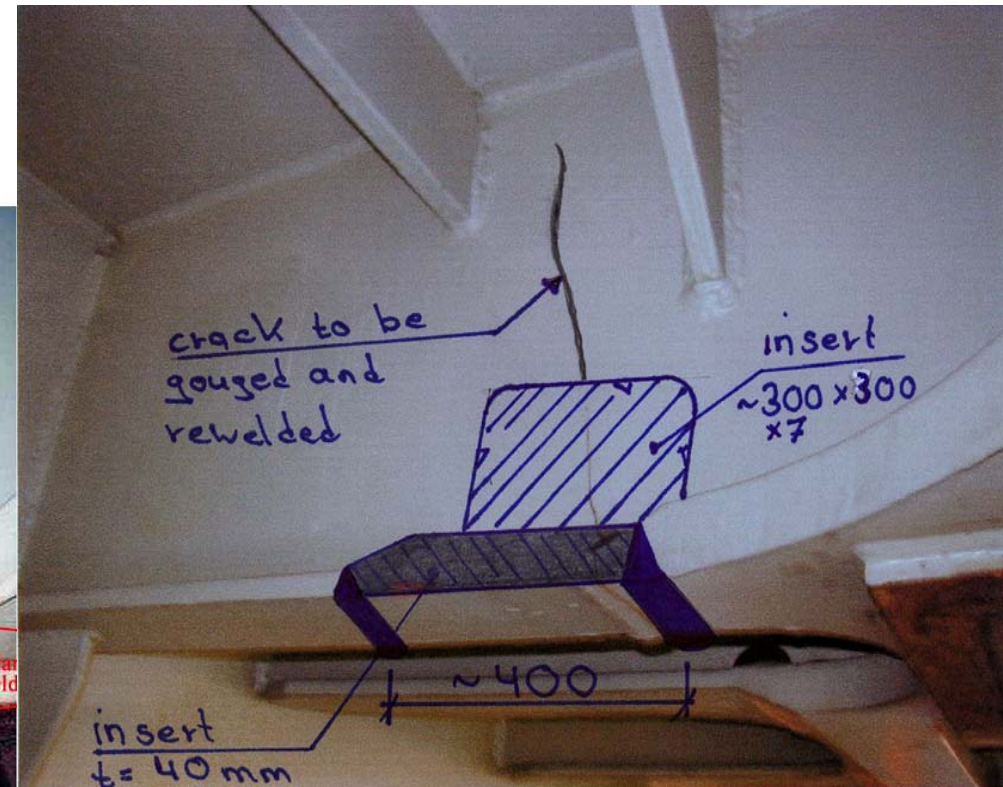 crack to be
gouged and
rewelded
insert
~300 x 300
x7
~400
insert
t= 40 mm